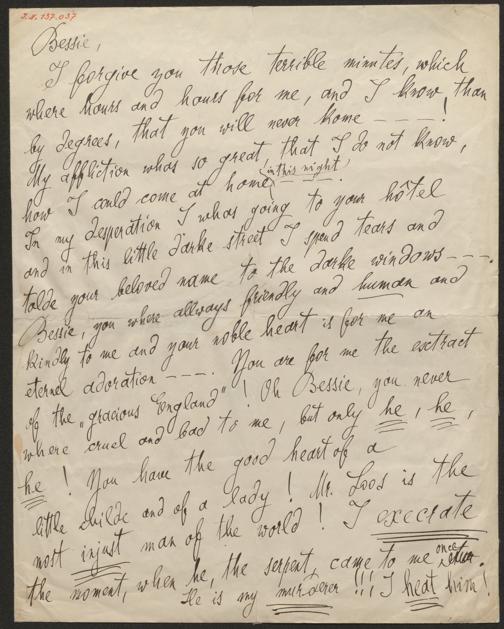 I.N. 137.037
Bessie,
I forgive you those terrible minutes, which
where hours and hours for me, and I know, than
by degrees, that you will never kome ----!
My affliction whas so great, that I do not know,
how I could come at home (in this night)!
In my desperation I whas going to your hôtel
and in this little darke street I spend tears and
tolde your beloved name to the darke windows---.
Bessie, you where allways friendly and human and
kindly to me and your noble heart is for me an
eternel adoration ---. You are for me the esctract
of the „gracious England"! Oh Bessie, you never
where cruel and bad to me, but only he, he,
he! You have the good heart of a
little childe and of a lady! Mr. Loos is the
most injust man of the world! I execrate
the moment, when he, the serpent, came to me once
He is my murderer!!! I heat him!